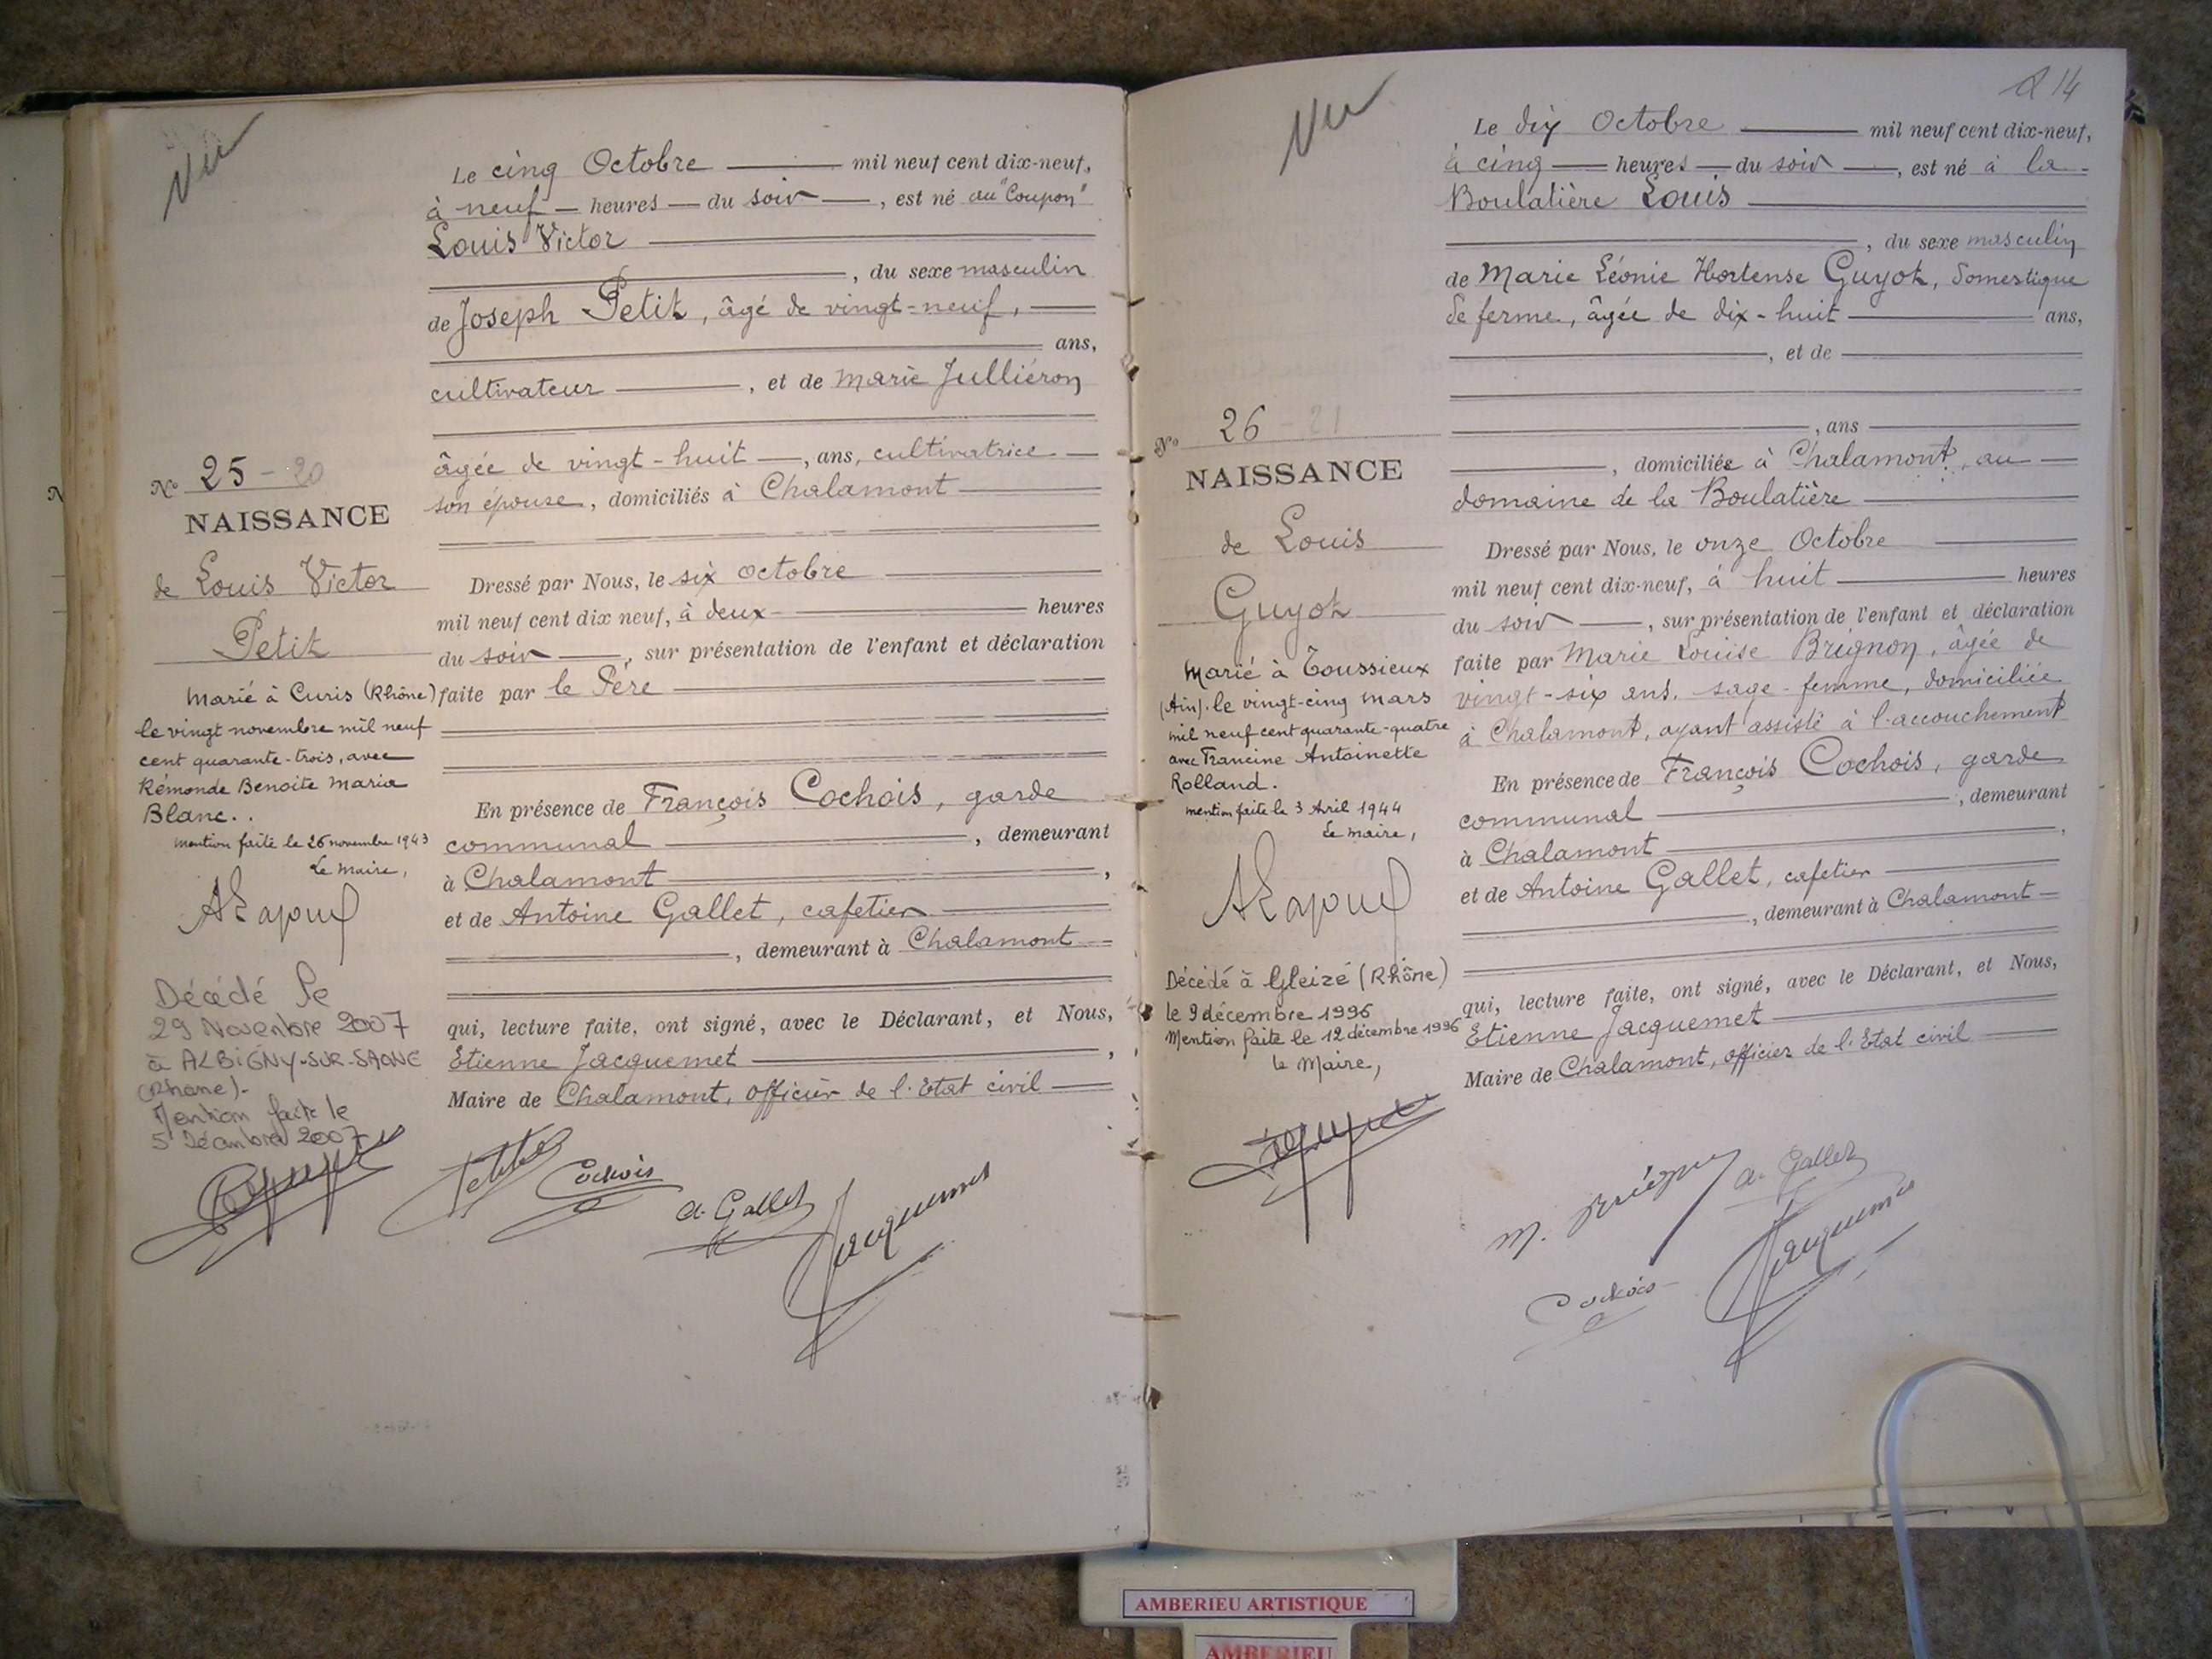 Vu
Le cinq Octobre mil neuf cent dix-neuf,
à neuf heures du soir, est né au "Coupon"
Louis Victor
, du sexe masculin
de Joseph Petit, âgé de vingt-neuf,
ans,
cultivateur, et de Marie Julliéron
âgée de vingt-huit, ans, cultivatrice
son épouse, domiciliés à Chalamont
Dressé par Nous, le six Octobre
mil neuf cent dix neuf, à deux heures
du soir, sur présentation de l'enfant et déclaration
faite par le Père
En présence de François Cochois, garde
communal, demeurant
à Chalamont,
et de Antoine Gallet, cafetier
, demeurant à Chalamont
qui, lecture faite, ont signé, avec le Déclarant, et Nous,
Etienne Jacquemet,
Maire de Chalamont, officier de l'Etat civil
Cochois
a. Gallet
Jacquemet
No 25 - 20
NAISSANCE
de Louis Victor
Petit
Marié à Curis (Rhône)
le vingt novembre mil neuf
cent quarante-trois, avec
Rémonde Benoite Maria
Blanc..
mention faite le 26 novembre 1943
Le maire,
Décédé le
29 Novembre 2007
à ALBIGNY-SUR-SAONE
(Rhône).
Mention faite le
5 Décembre 2007
Vu
14
Le dix Octobre mil neuf cent dix-neuf,
à cinq heures du soir, est né à la
Boulatière Louis
, du sexe masculin
de Marie Léonie Hortense Guyot, domestique
de ferme, âgée de dix-huit ans,
, et de
, ans
, domiciliée à Chalamont, au
domaine de la Boulatière
Dressé par Nous, le onze Octobre
mil neuf cent dix-neuf, à huit heures
du soir, sur présentation de l'enfant et déclaration
faite par Marie Louise Brignon, âgée de
vingt-six ans, sage-femme, domiciliée
à Chalamont, ayant assisté à l'accouchement
En présence de François Cochois, garde
communal, demeurant
à Chalamont,
et de Antoine Gallet, cafetier
, demeurant à Chalamont
qui, lecture faite, ont signé, avec le Déclarant, et Nous,
Etienne Jacquemet
Maire de Chalamont, officier de l'Etat civil
M. Brignon
a. Gallet
Cochois
Jacquemet
No 26 - 21
NAISSANCE
de Louis
Guyot
Marié à Toussieux
(Ain). le vingt-cinq mars
mil neuf cent quarante-quatre
avec Francine Antoinette
Rolland.
mention faite le 3 Avril 1944
Le maire,
Décédé à Gleizé (Rhône)
le 9 décembre 1996
Mention faite le 12 décembre 1996
le Maire,
AMBERIEU ARTISTIQUE
AMBERIEU